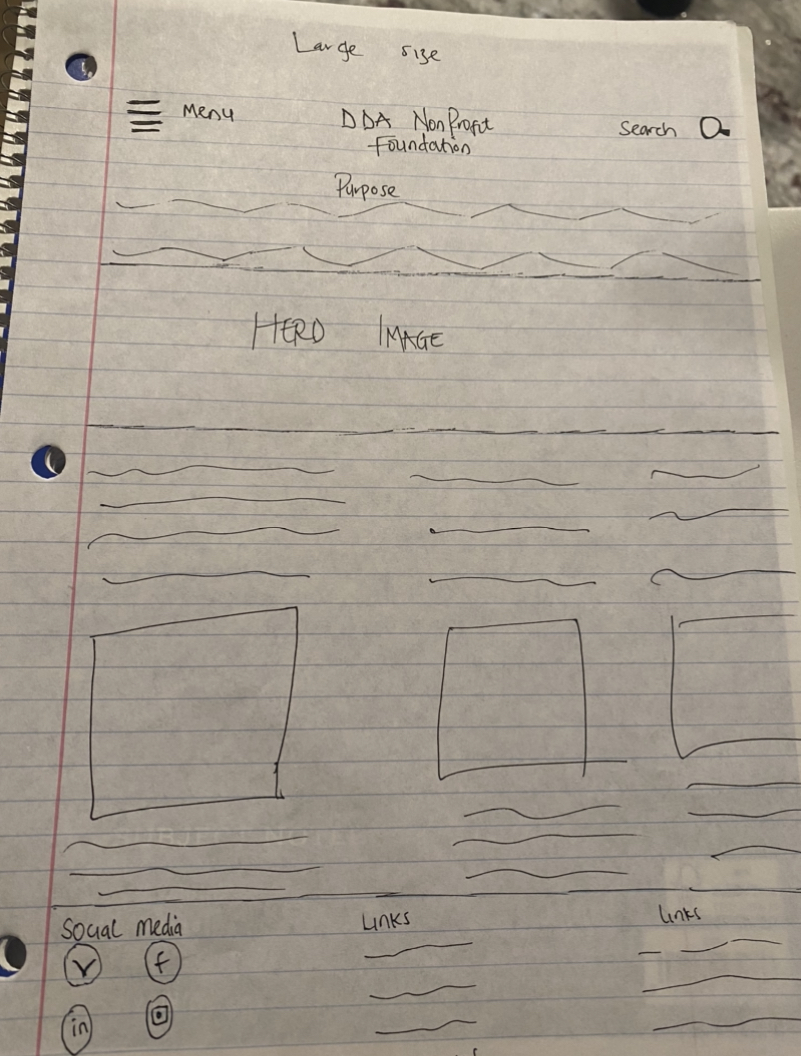 Large size
Menu
DDA NonProfit
Foundation
Search
Purpose
HERO IMAGE
Social Media
Links
Links
f
in